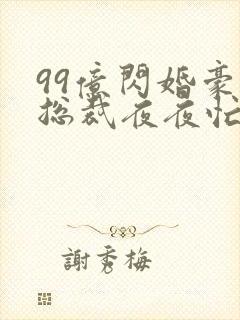 99億閃婚豪
总裁夜夜忙
謝秀梅